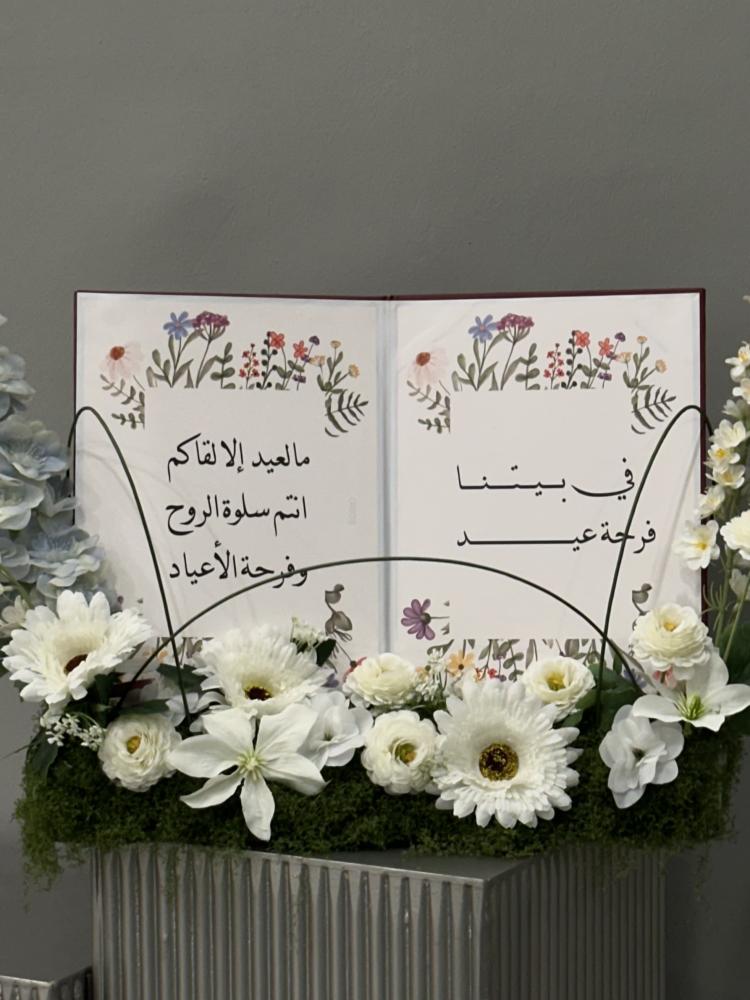 في بيتنا
فرحة عيد
مالعيد إلا لقاكم
انتم سلوة الروح
وفرحة الأعياد